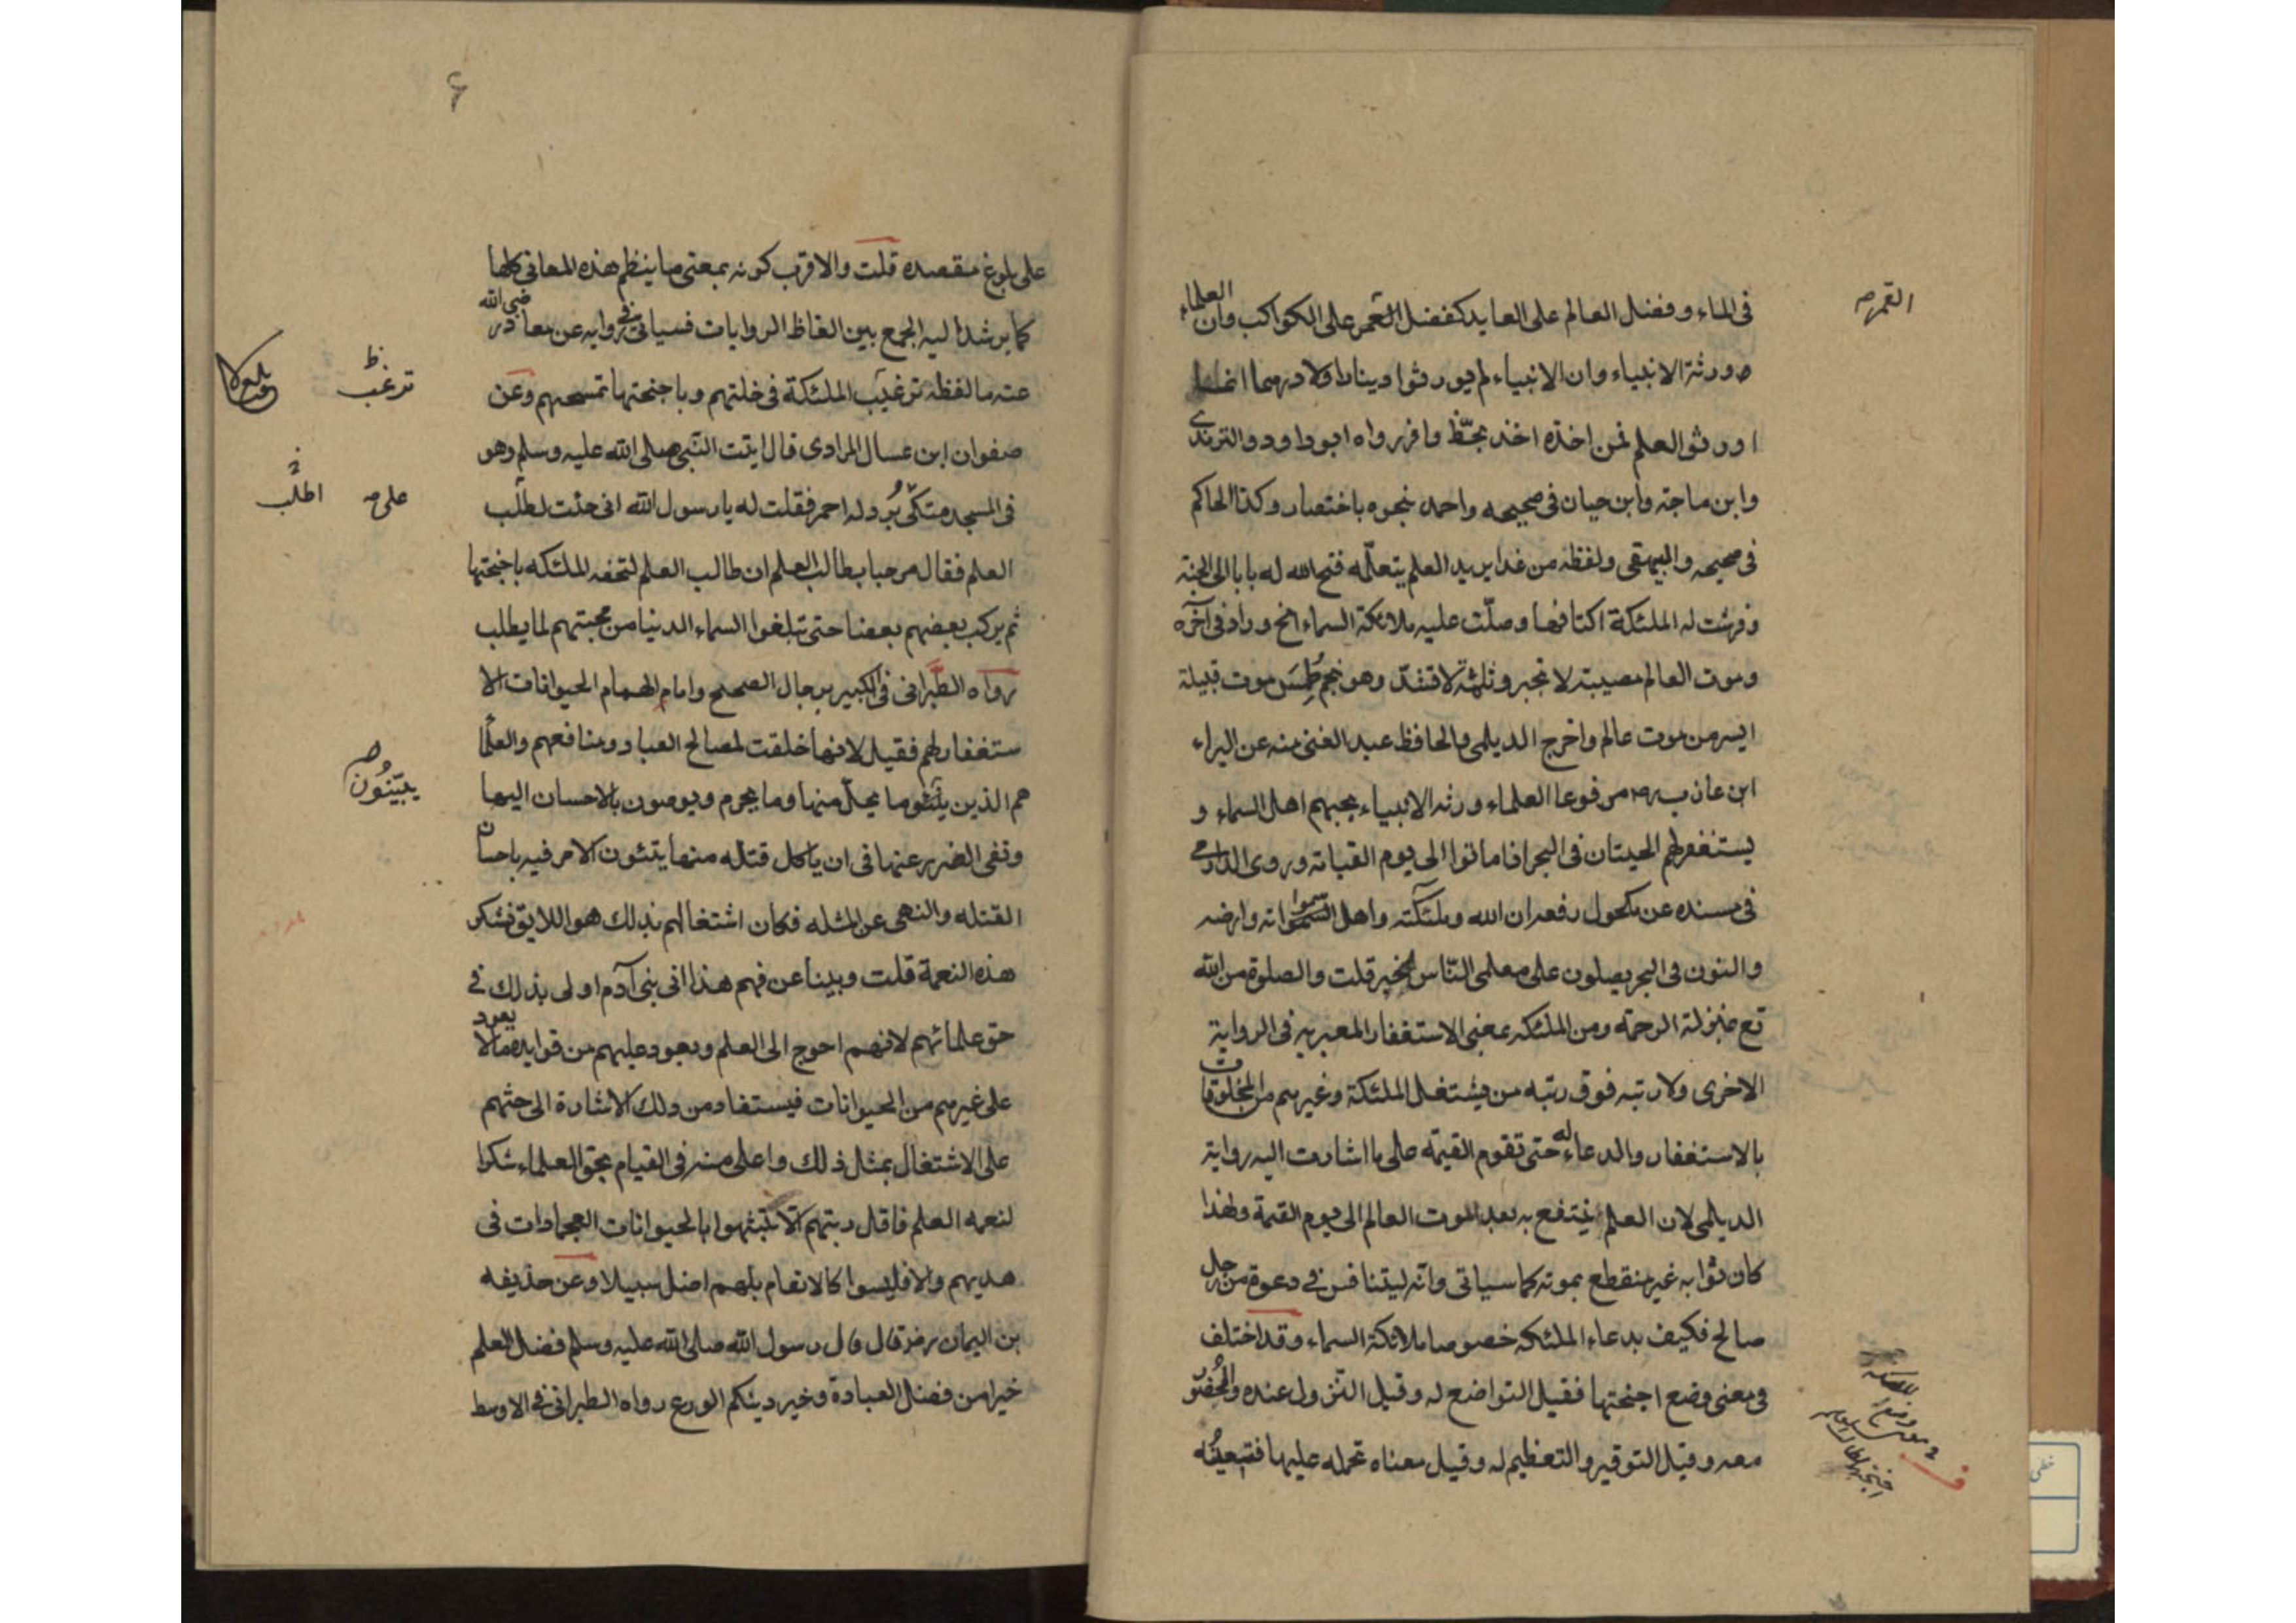 فى الماء وفضل العالم على العابد كفضل القمر على الكواكب وان العلماء
ورثة الانبياء وان الانبياء لم يورثوا دينارا ولا درهما انما
اورثوا العلم فمن اخذه اخذ بحظّ وافر رواه ابوداود والترمذى
وابن ماجة وابن حبان فى صحيحه واحمد بنحوه باختصار وكذا الحاكم
فى صحيحه والبيهقى ولفظه من غدا يريد العلم يتعلّمه فتح الله له بابا الى الجنة
وفرشت له الملئكة اكنافها وصلّت عليه ملائكة السماء الخ وزاد فى آخره
وموت العالم مصيبة لا تجبر وثلمة لا تسدّ وهو نجم طُمِسَ موت قبيلة
ايسر من موت عالم واخرج الديلمى والحافظ عبد الغنى منه عن البراء
ابن عازب رض مرفوعا العلماء ورثه الانبياء يحبهم اهل السماء و
يستغفر لهم الحيتان فى البحر اذا ماتوا الى يوم القيامة وروى الدارمى
فى مسنده عن مكحول رفعه ان الله وملئكته واهل سمواته وارضه
والنون فى البحر يصلون على معلمى النّاس الخير قلت والصلوة من الله
تع بمنزلة الرحمة ومن الملئكه بمعنى الاستغفار المعبر به فى الرواية
الاخرى ولا رتبه فوق رتبه من يشتغل الملئكة وغيرهم من المخلوقات
بالاستغفار والدعاء له حتى تقوم القيمة على ما اشارت اليه رواية
الديلمى لان العلم ينتفع به بعد الموت العالم الى يوم القيمة ولهذا
كان ثوابه غير منقطع بموته كما سياتى وانّه ليتنافس فى دعوة من رجل
صالح فكيف بدعاء الملئكه خصوصا ملائكة السماء وقد اختلف
فى معنى وضع اجنحتها فقيل التواضع له وقيل النزول عنده والحُضُور
معه وقيل التوقير والتعظيم له وقيل معناه تحمله عليها فتعينُه
القمر صح
على بلوغ مقصده قلت والاقرب كونه بمعنى ما ينظم هذه المعانى كلها
كما يرشد اليه الجمع بين الفاظ الروايات فسياتى فى روايه عن معاذ رضى الله
عنه ما لفظه ترغب الملئكة فى خلتهم وباجنحتها تمسحهم وعن
صفوان ابن عسال المرادى قال اتيت النّبى صلى الله عليه وسلم وهو
فى المسجد متكى بُرد له احمر فقلت له يا رسول الله انى جئت لطلب
العلم فقال مرحبا بطالب العلم ان طالب العلم لتحفه الملئكه باجنحتها
ثم يركب بعضهم بعضا حتى تبلغوا السماء الدنيا من محبتهم لما يطلب
رواه الطّبرانى فى الكبير برجال الصحيح وامام الهمام الحيوانات الا
ستغفار لهم فقيل لانها خلقت لمصالح العباد ومنافعهم والعلما
هم الذين يبيّنون ما يحلّ منها وما يحرم ويوصون بالاحسان اليها
ونفى الضرر عنها فى ان ياكل قتله منها يتئون الامر فيه باحسان
القتله والنهى عن المثله فكان اشتغالهم بذلك هو اللايق فشكر
هذه النعمة قلت وبينا عن فهم هذا انى بنى آدم اولى بذلك فى
حق علمائهم لانهم احوج الى العلم ويعود عليهم من فوايده ما لا يعود
على غيرهم من الحيوانات فيستفاد من ذلك الاشارة الى حثهم
على الاشتغال بمثل ذلك واعلى منه فى القيام بحق العلماء شكرا
لنعمه العلم فاقل رتبتهم الا يتشبهوا بالحيوانات العجماوات فى
هديهم والا فليسوا كالانعام بل هم اضل سبيلا وعن حذيفه
بن اليمان رض قال قال رسول الله صلى الله عليه وسلم فضل العلم
خير من فضل العبادة وخير دينكم الورع رواه الطبرانى فى الاوسط
ترغب ظ
على صح
اطلب
يبيّنُون صح